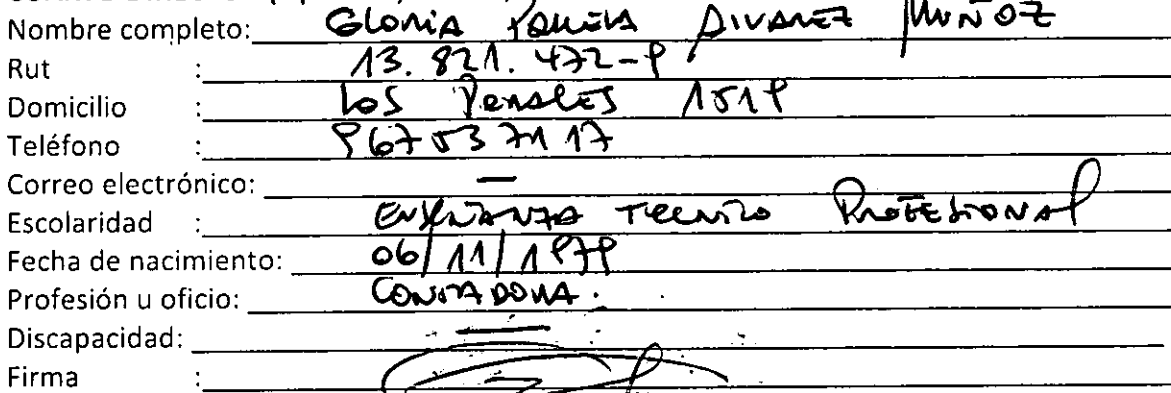 Nombre completo: GLORIA PAMELA ALVAREZ MUÑOZ
Rut : 13.821.472-9
Domicilio : LOS PERALES 1519
Teléfono : 967537117
Correo electrónico: —
Escolaridad : ENSEÑANZA TECNICO PROFESIONAL
Fecha de nacimiento: 06/11/1979
Profesión u oficio: CONTADORA.
Discapacidad: —
Firma :